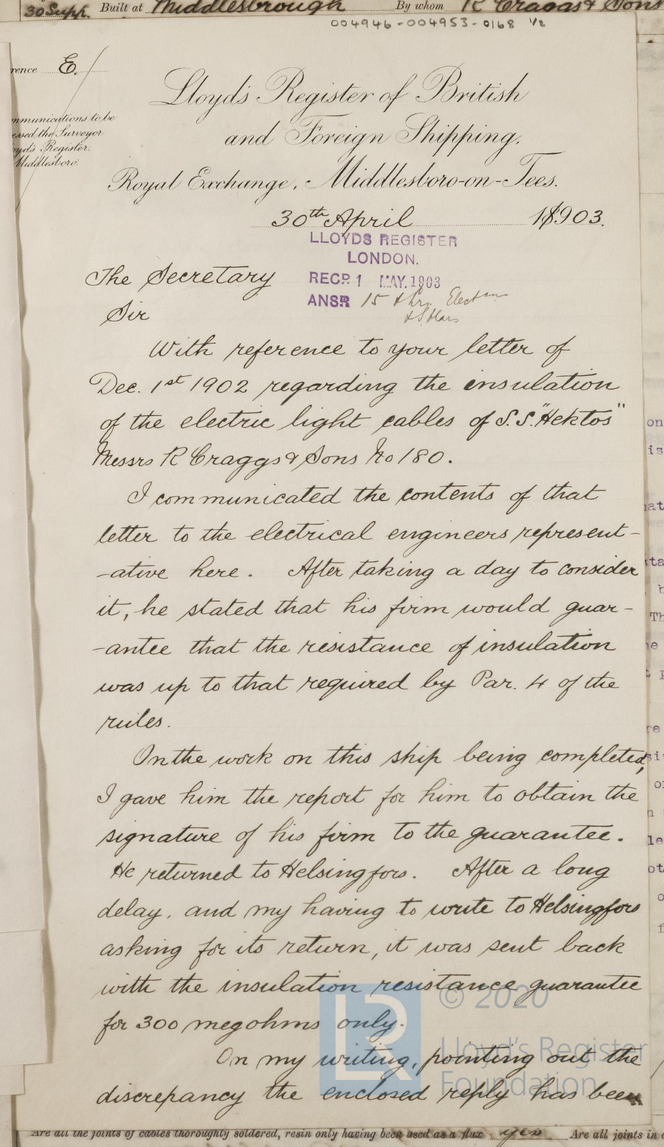 30 Supp. Built at Middlesbrough By whom R Craggs & Sons
004946-004953-0168 1/2
rence E.
mmunications to be
essed, the Surveyor
yd's Register.
Middlesboro.
Lloyd's Register of British
and Foreign Shipping.
Royal Exchange, Middlesboro-on-Tees.
30th April 1903.
LLOYDS REGISTER
LONDON.
RECD 1 MAY. 1903
ANSR 15
The Secretary
Sir
With reference to your letter of
Dec. 1st 1902 regarding the insulation
of the electric light cables of S.S. "Hektos"
Messrs R Craggs & Sons No 180.
I communicated the contents of that
letter to the electrical engineers represent-
-ative here. After taking a day to consider
it, he stated that his firm would guar-
-antee that the resistance of insulation
was up to that required by Par. 4 of the
rules.
On the work on this ship being completed,
I gave him the report for him to obtain the
signature of his firm to the guarantee.
He returned to Helsingfors. After a long
delay, and my having to write to Helsingfors
asking for its return, it was sent back
with the insulation resistance guarantee
for 300 megohms only.
On my writing, pointing out the
discrepancy the enclosed reply has been
LR © 2020
Lloyd's Register
Foundation
Are all the joints of cables thoroughly soldered, resin only having been used as a flux yes Are all joints in